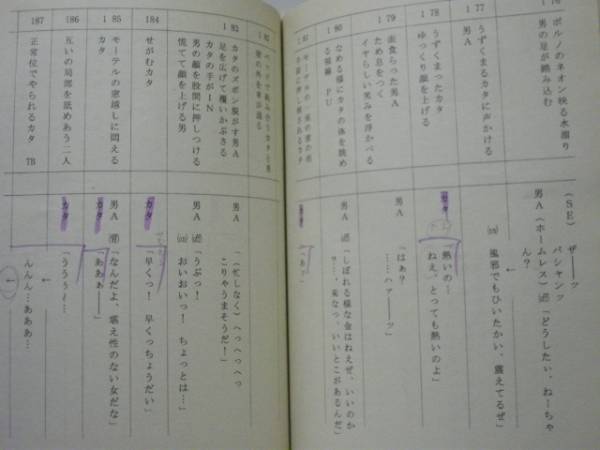 ポルノのネオン映る水溜り
男の足が踏み込む
177
うずくまるカタに声かける
男A
178
うずくまったカタ
ゆっくり顔を上げる
179
面食らった男A
ため息をつく
イヤらしい笑みを浮かべる
180
なめる様にカタの体を眺め
る視線 PU
(SE) ザーーッ
バシャンッ
男A(ホームレス)「どうしたい、ねーちゃ
ん?
風邪でもひいたかい、震えてるぜ」
カタ
「熱いの…
ねえ、とっても熱いのよ」
男A
「はぁ?
……ハァーッ
男A
「しぼれる様な金はねえぜ、いいのか
?…、来なっ、いいとこがあるんだ」
カタ
カタのズボン脱がす男A
足を広げて覆いかぶさる
カタの手がIN
男の顔を股間に押しつける
慌てて顔を上げる男
184
せがむカタ
185
モーテルの窓越しに悶える
カタ
186
互いの局部を舐めあう二人
187
正常位でやられるカタ TB
男A
(忙しなく)へっへっへっ
こりゃうまそうだ!」
男A
「うぷっ!
おいおいっ! ちょっとは…」
カタ
「早くっ! 早くっちょうだい」
男A
「なんだよ、堪え性のない女だな」
カタ
「ああぁ――」
カタ
「うううぅ…
んんん…あああ…